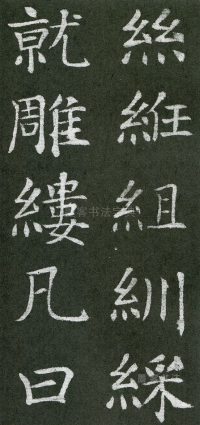 絲絍組紃綵
就雕縷凡曰